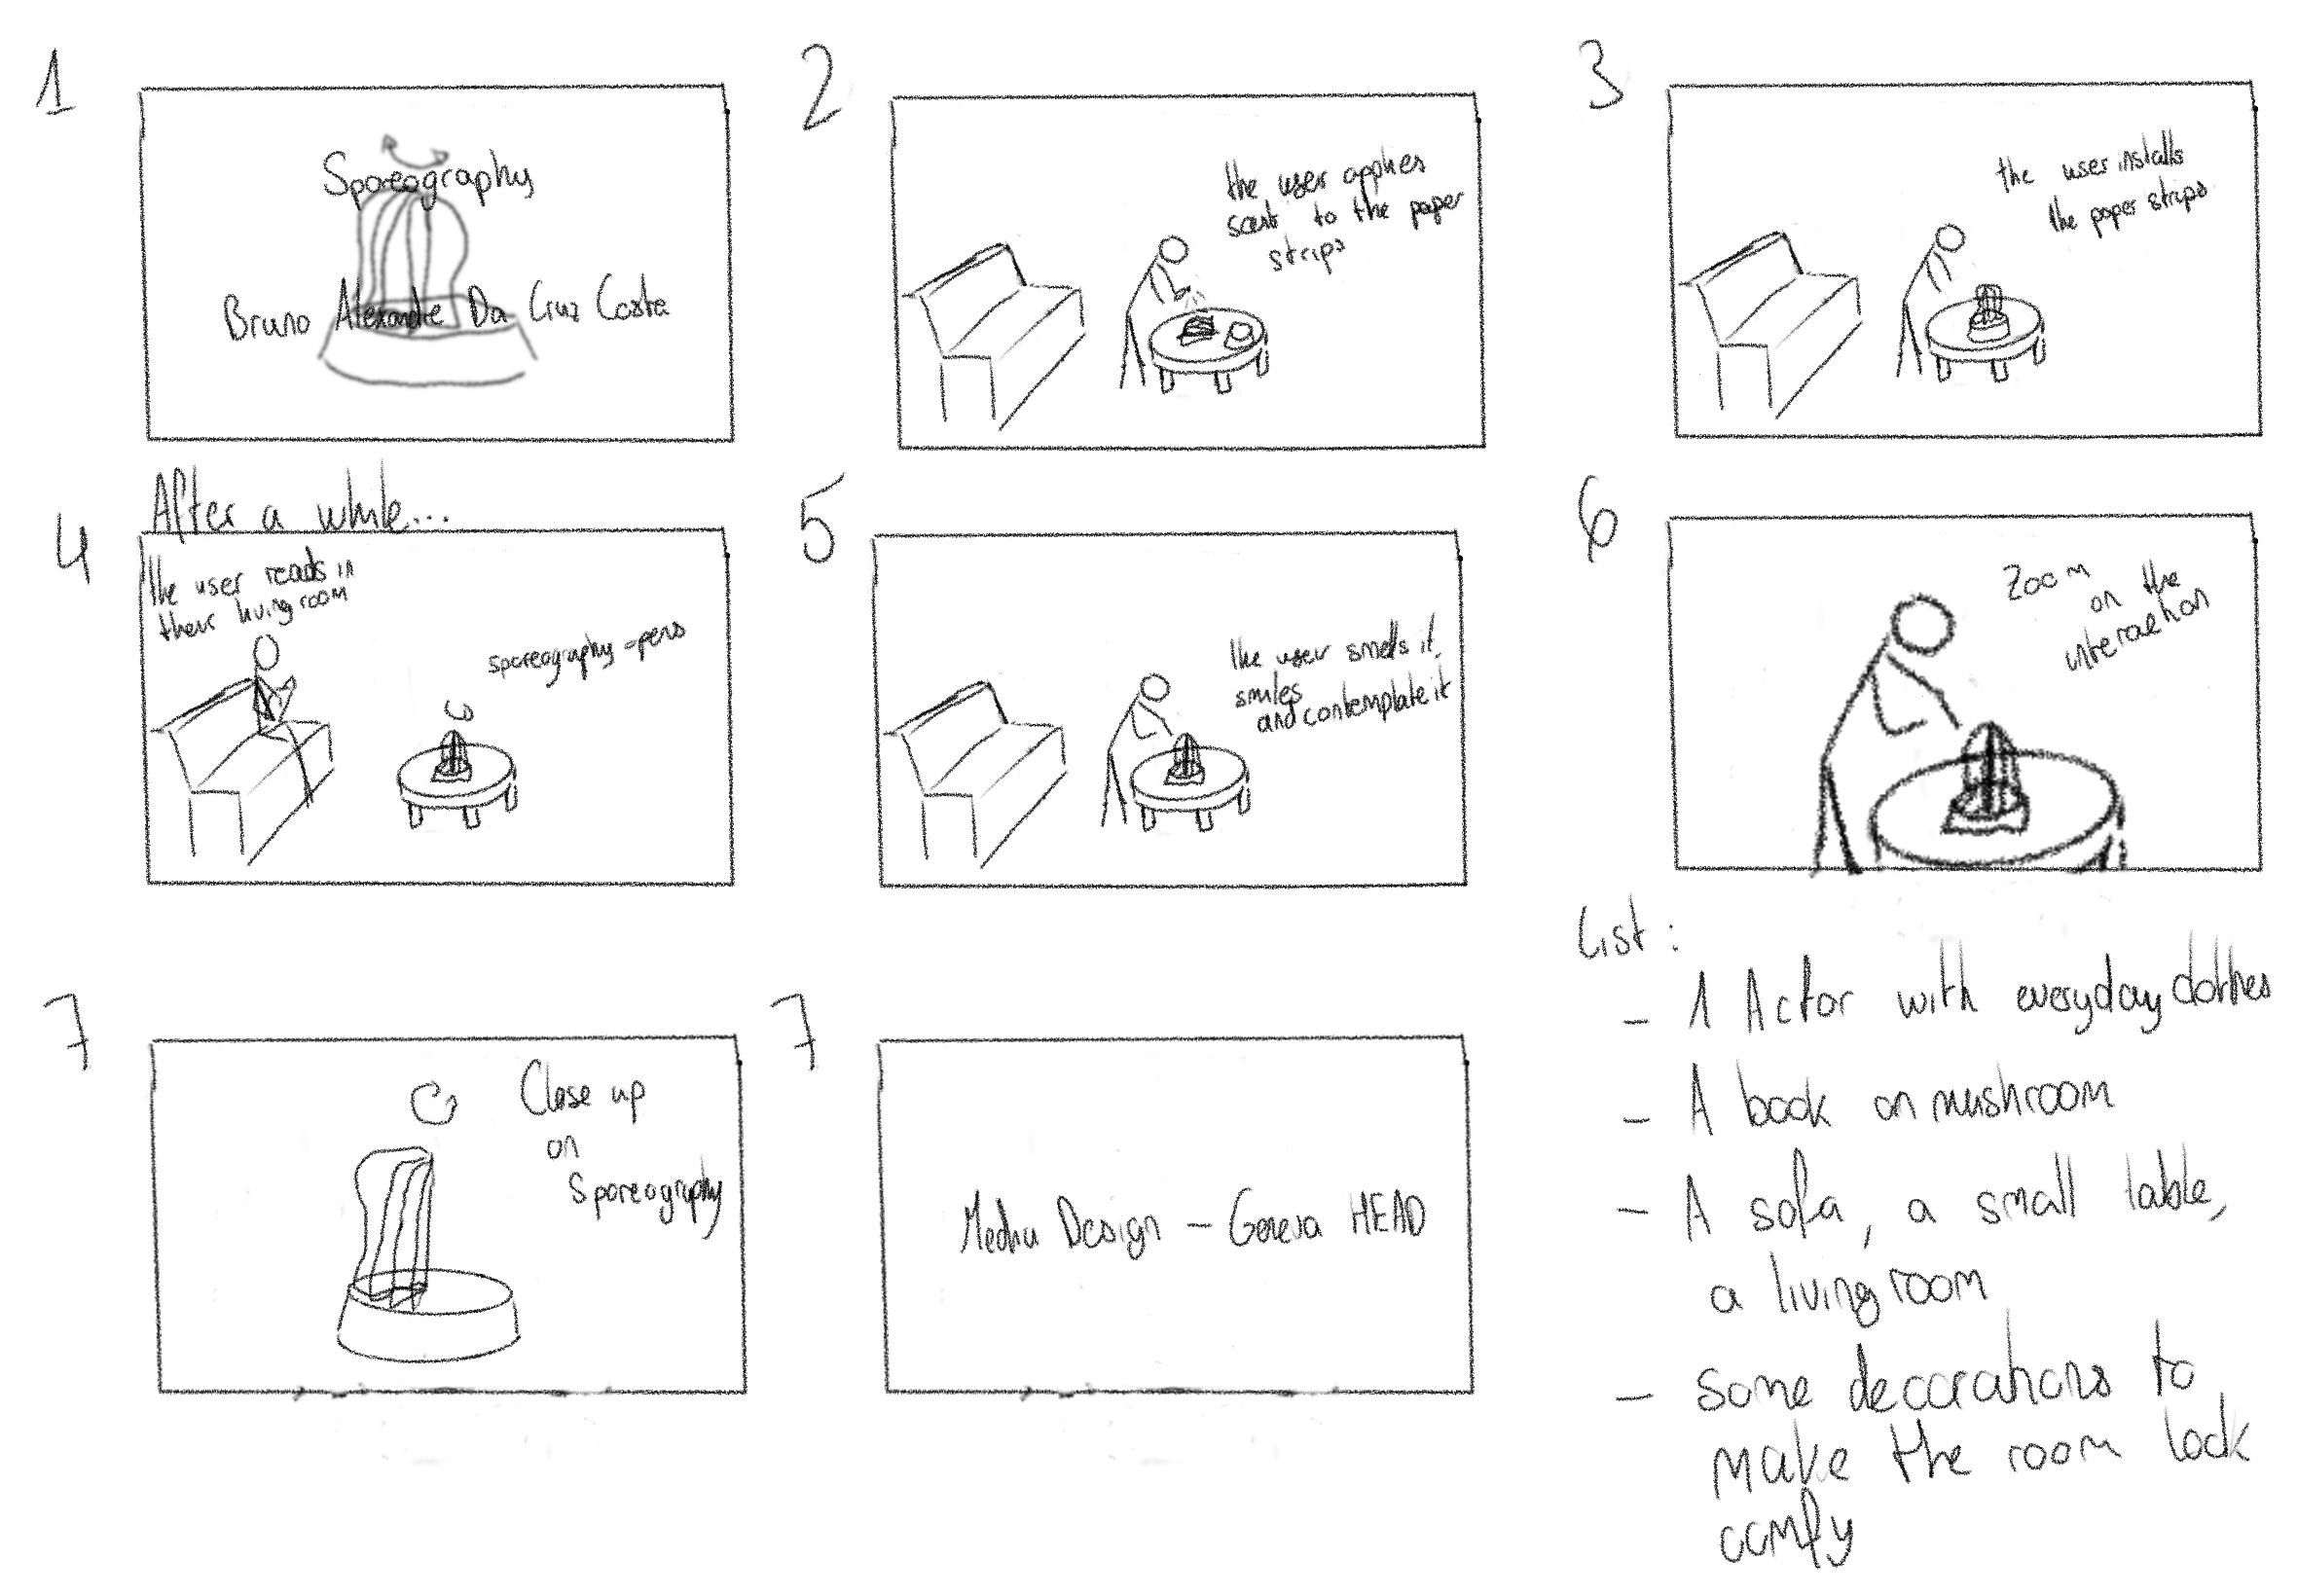 1
Sporeography
Bruno Alexandre Da Cruz Costa
2
the user applies
scent to the paper
strips
3
the user installs
the paper strips
After a while...
4
the user reads in
their living room
sporeography
5
the user smells it,
smiles
and contemplate it
6
Zoom
on the
interaction
7
Close up
on
Sporeography
7
Media Design - Geneva HEAD
List :
- 1 Actor with everyday clothes
- A book on mushroom
- A sofa, a small table,
a living room
- some decorations to
make the room look
comfy